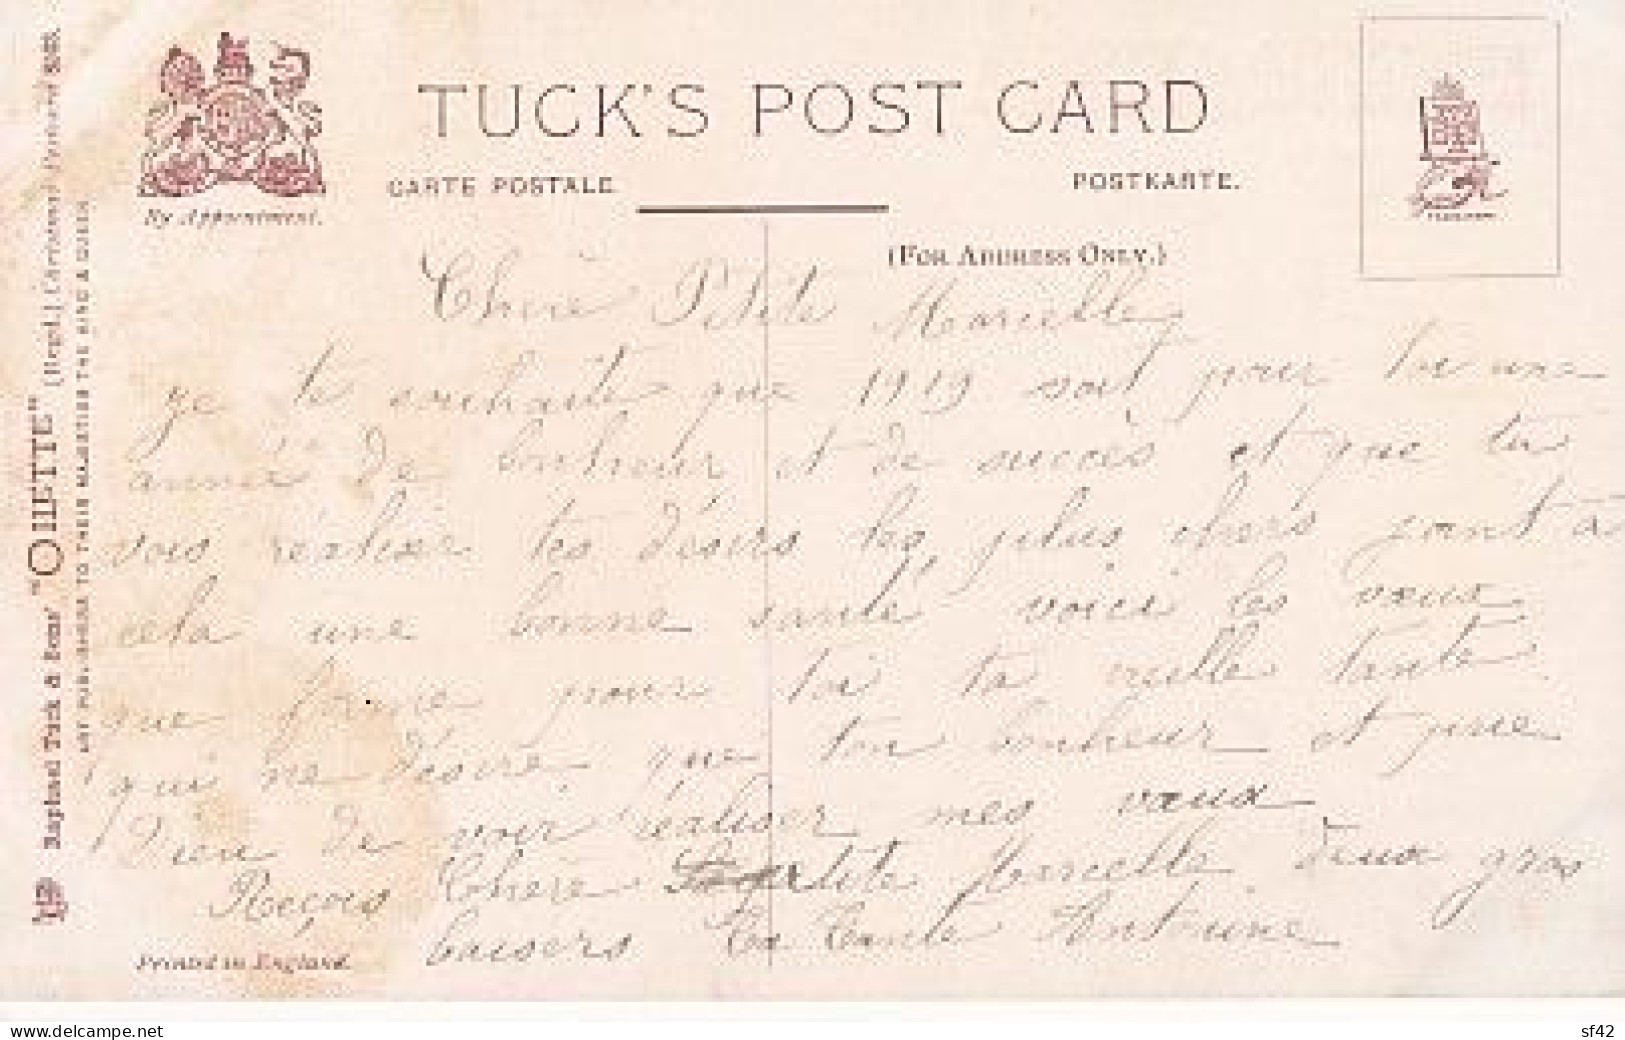 TUCK'S POST CARD
CARTE POSTALE.
POSTKARTE.
By Appointment.
(FOR ADDRESS ONLY.)
Raphael Tuck & Sons' "OILETTE" [Regd.]
ART PUBLISHERS TO THEIR MAJESTIES THE KING & QUEEN
Chère Petite Marcelle
ge te souhaite que 1919 soit pour toi une
année de bonheur et de succès et que tu
vois réaliser tes désirs les plus chers joint à
cela une bonne santé voici les vœux
que forme pour toi ta vieille tante
qui ne désire que ton bonheur et prie
Dieu de voir réaliser mes vœux
Reçois Chère petite Marcelle deux gros
baisers ta tante Antoine
Printed in England.
www.delcampe.net
sf42